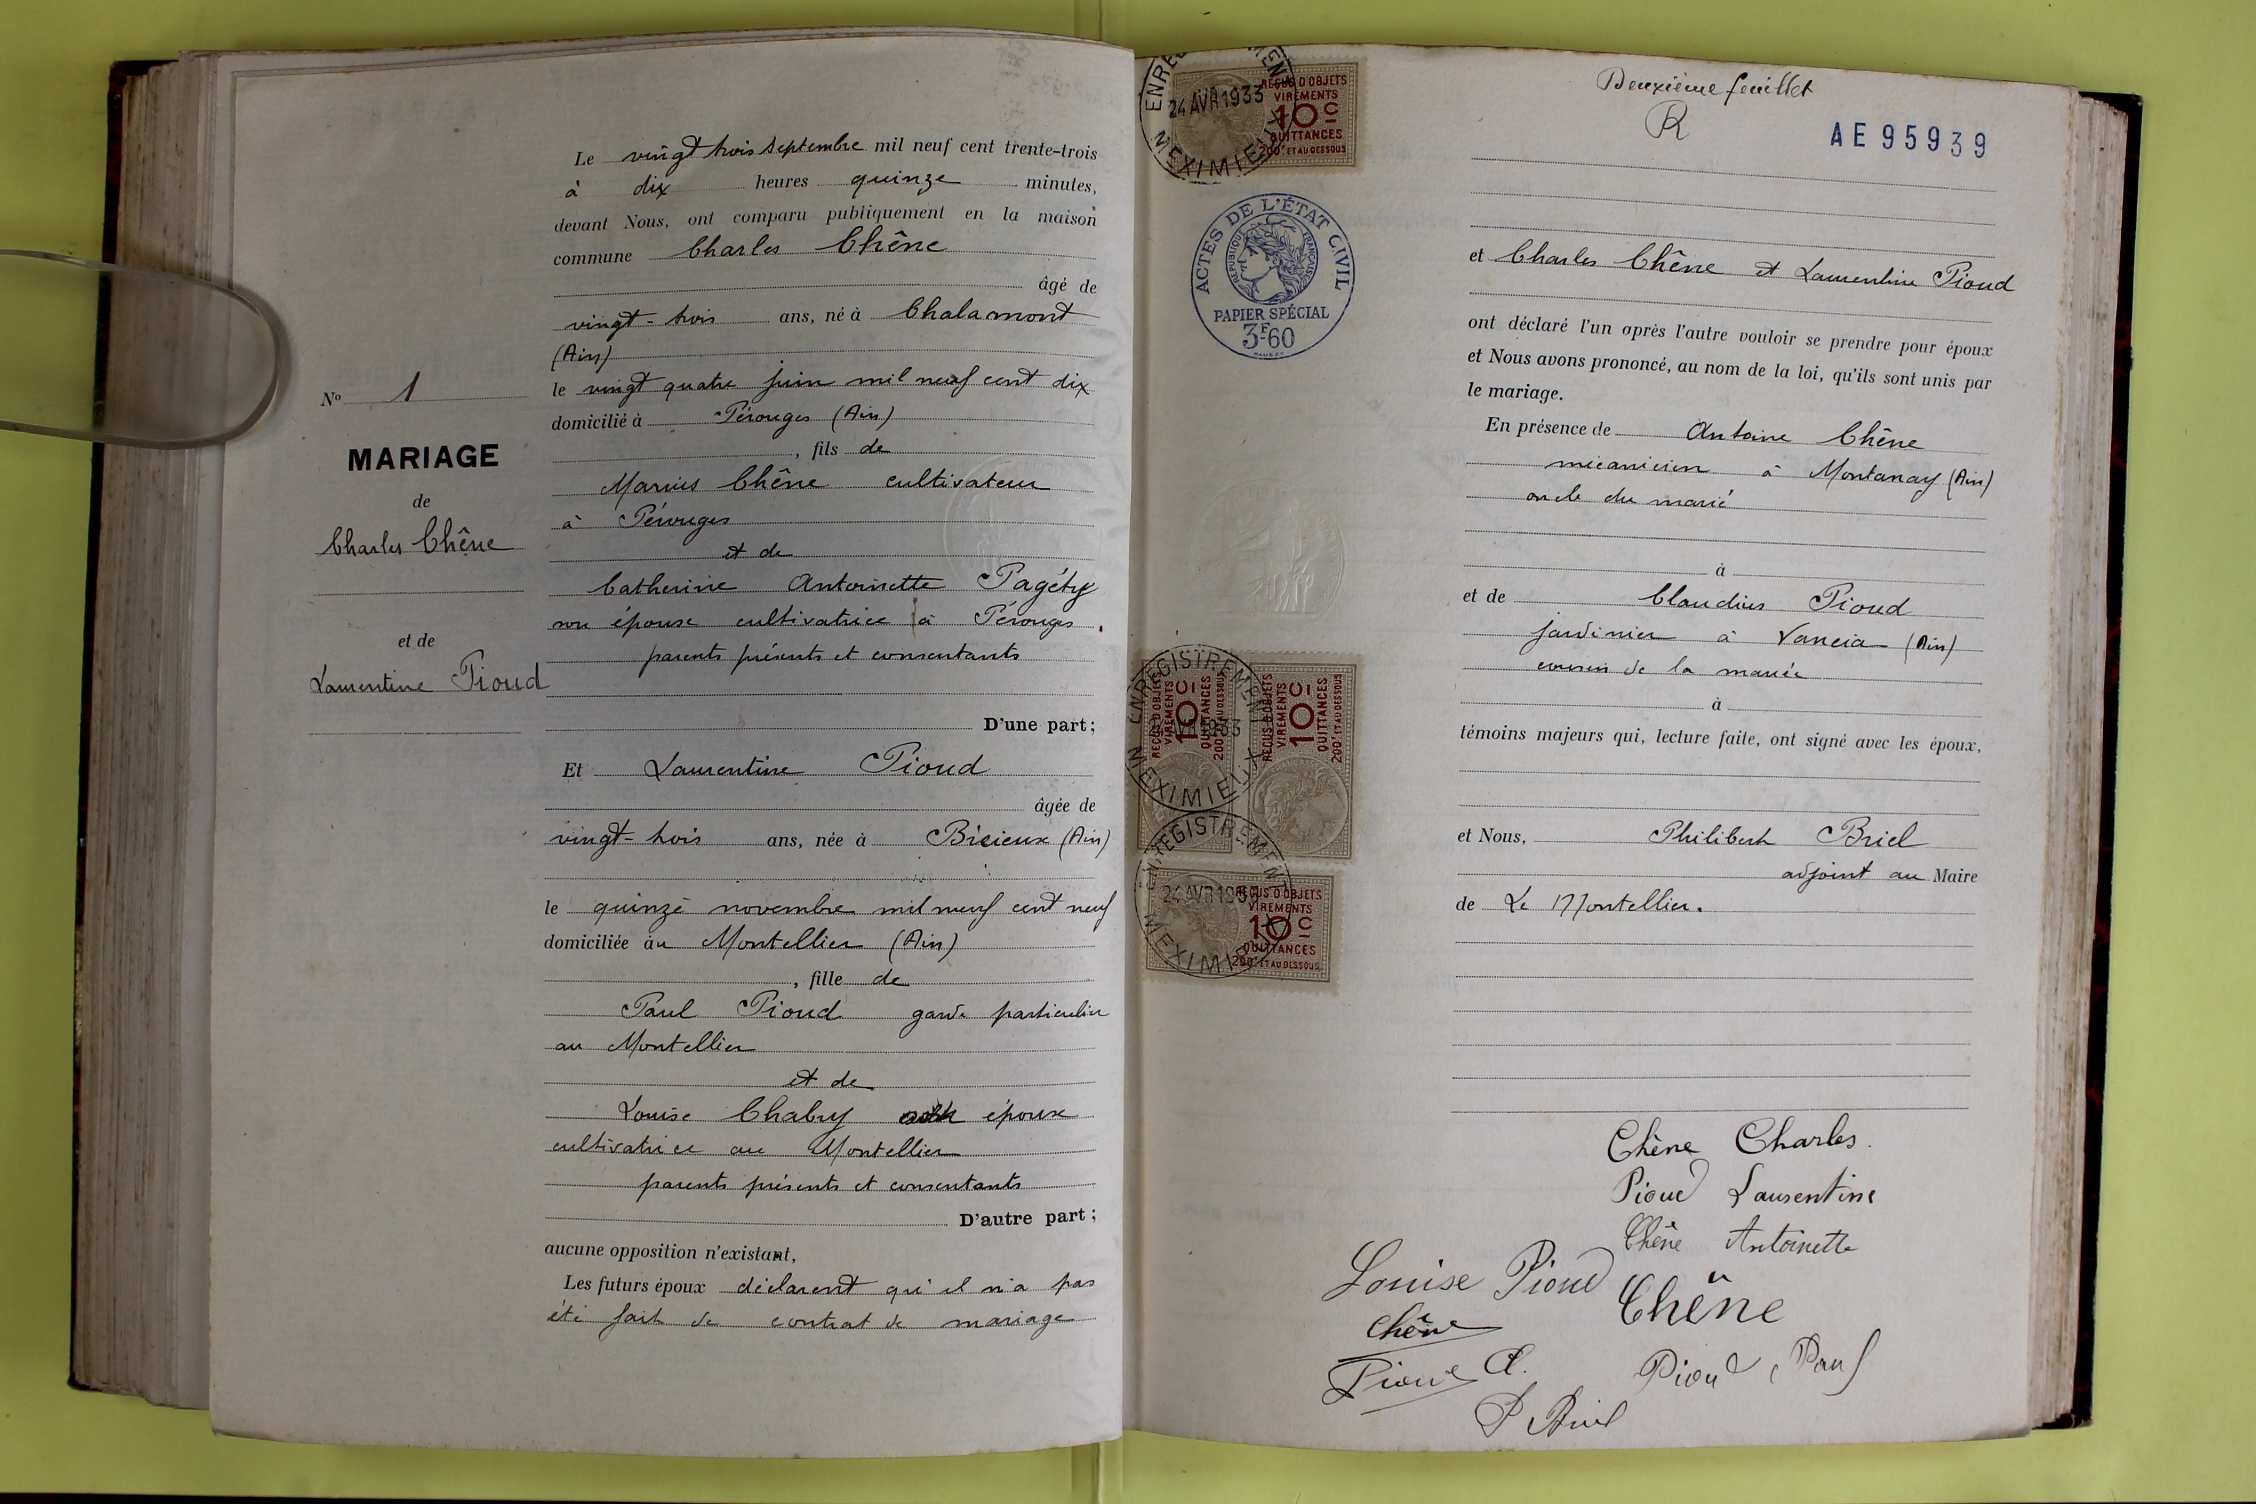 Le vingt trois septembre mil neuf cent trente-trois
à dix heures quinze minutes,
devant Nous, ont comparu publiquement en la maison
commune Charles Chêne
âgé de
vingt-trois ans, né à Chalamont
(Ain)
le vingt quatre juin mil neuf cent dix
domicilié à Pérouges (Ain)
, fils de
Marius Chêne cultivateur
à Pérouges
et de
Catherine Antoinette Pagéty
son épouse cultivatrice à Pérouges
parents présents et consentants
D'une part;
Et Laurentine Pioud
âgée de
vingt-trois ans, née à Birieux (Ain)
le quinze novembre mil neuf cent neuf
domiciliée au Montellier (Ain)
, fille de
Paul Pioud garde particulier
au Montellier
et de
Louise Chabry épouse
cultivatrice au Montellier
parents présents et consentants
D'autre part;
aucune opposition n'existant,
Les futurs époux déclarent qu'il n'a pas
été fait de contrat de mariage
N° 1
MARIAGE
de
Charles Chêne
et de
Laurentine Pioud
ENREGISTREMENT
24 AVR 1933
MEXIMIEUX
REÇUS D'OBJETS
VIREMENTS
10c
QUITTANCES
200F ET AU DESSOUS
ACTES DE L'ÉTAT CIVIL
RÉPUBLIQUE FRANÇAISE
PAPIER SPÉCIAL
3F60
ENREGISTREMENT
1933
MEXIMIEUX
REÇUS D'OBJETS
VIREMENTS
10c
QUITTANCES
200F ET AU DESSOUS
REÇUS D'OBJETS
VIREMENTS
10c
QUITTANCES
200F ET AU DESSOUS
ENREGISTREMENT
24 AVR 1933
MEXIMIEUX
REÇUS D'OBJETS
VIREMENTS
10c
QUITTANCES
200F ET AU DESSOUS
Deuxième feuillet
R
AE95939
et Charles Chêne et Laurentine Pioud
ont déclaré l'un après l'autre vouloir se prendre pour époux
et Nous avons prononcé, au nom de la loi, qu'ils sont unis par
le mariage.
En présence de Antoine Chêne
mécanicien à Montanay (Ain)
oncle du marié
à
et de Claudius Pioud
jardinier à Vancia (Ain)
cousin de la mariée
à
témoins majeurs qui, lecture faite, ont signé avec les époux,
et Nous, Philibert Briel
adjoint au Maire
de Le Montellier.
Chêne Charles.
Pioud Laurentine
Chêne Antoinette
Louise Pioud Chêne
Chêne
Pioud C. Pioud Paul
P Briel